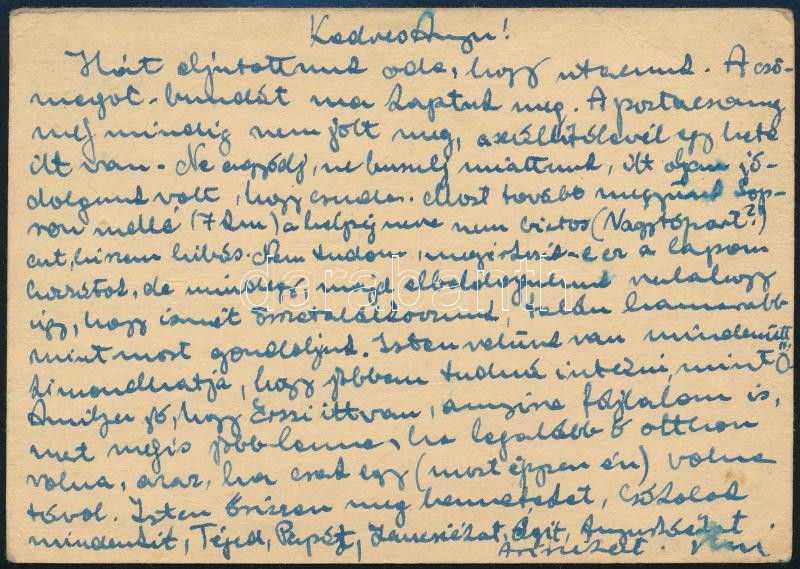 Kedves Anyu!
Hát eljutottunk oda, hogy utazunk. A cso-
magot-bundát ma kaptuk meg. A postacsomag
még mindig nem jött meg, a szállítólevél egy hete
itt van. Ne aggódj, ne busulj miattunk, itt olyan jó
dolgunk volt, hogy csuda. Most tovább megyünk Sop-
ron mellé (7 km) a helység neve nem biztos (Nagytópart?)
ezt, hiszem hibás. Nem tudom, megérkezik-e ez a lapom
hozzátok, de mindegy, majd elboldogulunk valahogy
úgy, hogy ismét összetalálkozunk, talán hamarabb
mint most gondoljuk. Isten velünk van mindenütt
ki mondhatja, hogy jobban tudná intézni, mint Ő.
Amilyen jó, hogy Erzsi itt van, annyira fájlalom is,
mert mégis jobb lenne, ha legalább ő otthon
volna, azaz, ha csak egy (most éppen én) volna
távol. Isten őrizzen meg benneteket, csókolok
mindenkit, Téged, Papát,